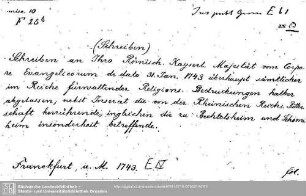 misc. 10
F 256
Jus publ. Germ. E L I
(Schreiben)
Schreiben an Ihro Römisch. Kayserl. Majestät von Corpore
Evangelicorum de dato 31. Jan. 1743. überhaupt sämtlicher
im Reiche fürwaltender Religions-Bedruckungen halber
abgelassen, nebst Inserat die von der Rheinischen Reichs Ritterschaft
herrührende, ingleichen die zu Bechtolsheim und
heim insonderheit betreffende.
Franckfurt a. M. 1743. E IV
fol.